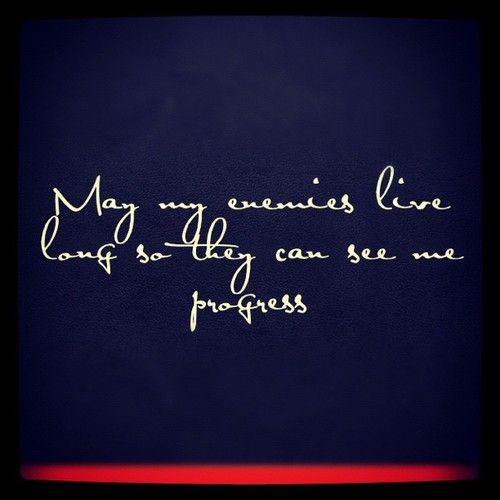 May my enemies live
long so they can see me
progress